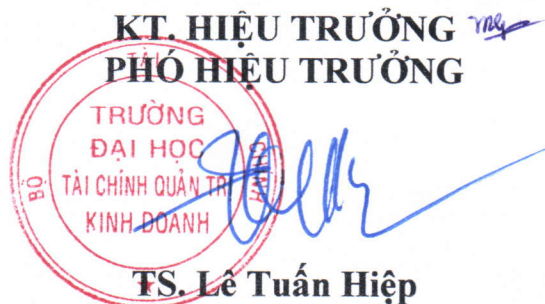 KT. HIỆU TRƯỞNG
PHÓ HIỆU TRƯỞNG
BỘ TÀI CHÍNH
TRƯỜNG
ĐẠI HỌC
TÀI CHÍNH QUẢN TRỊ
KINH DOANH
TS. Lê Tuấn Hiệp